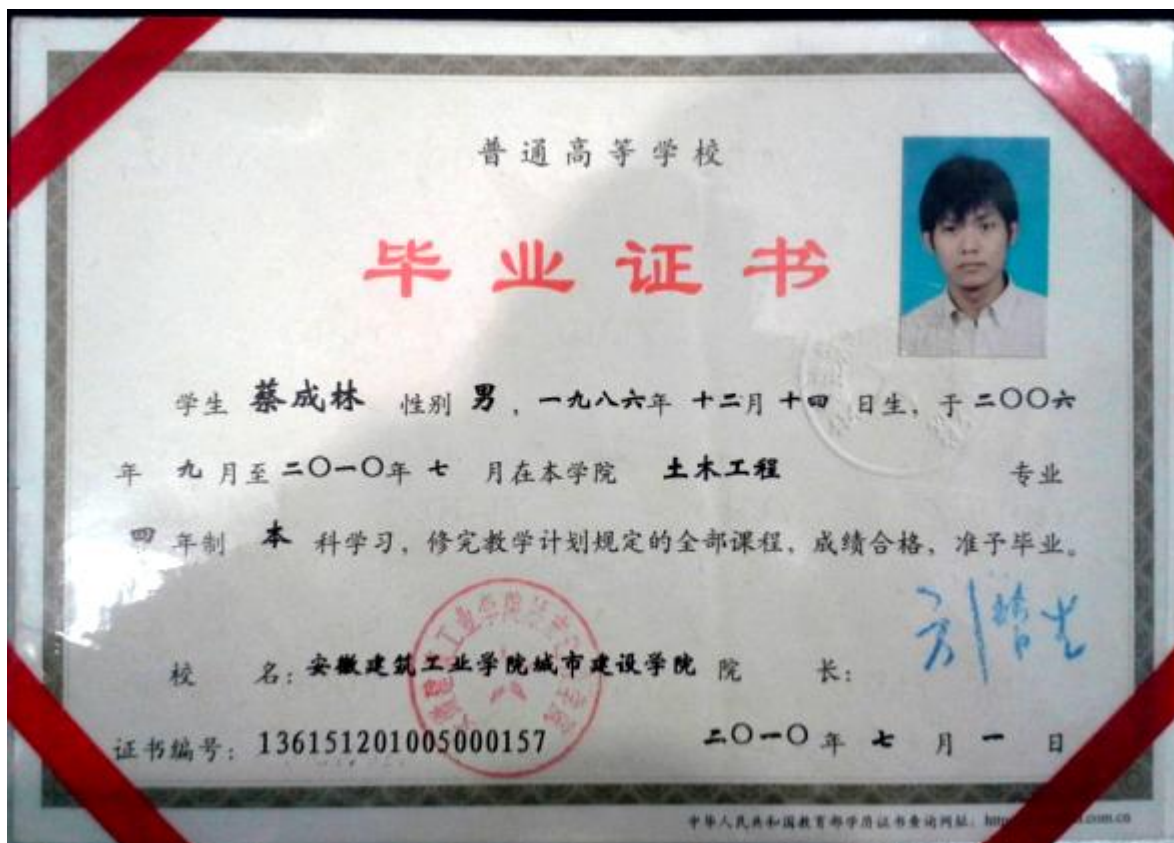 普通高等学校
毕业证书
学生 蔡成林 性别 男，一九八六年 十二月 十四 日生，于 二〇〇六
年 九 月至 二〇一〇年 七 月在本学院 土木工程 专业
四 年制 本 科学习，修完教学计划规定的全部课程，成绩合格，准予毕业。
校 名：安徽建筑工业学院城市建设学院 院 长：
证书编号：136151201005000157 二〇一〇 年 七 月 一 日
中华人民共和国教育部学历证书查询网址：